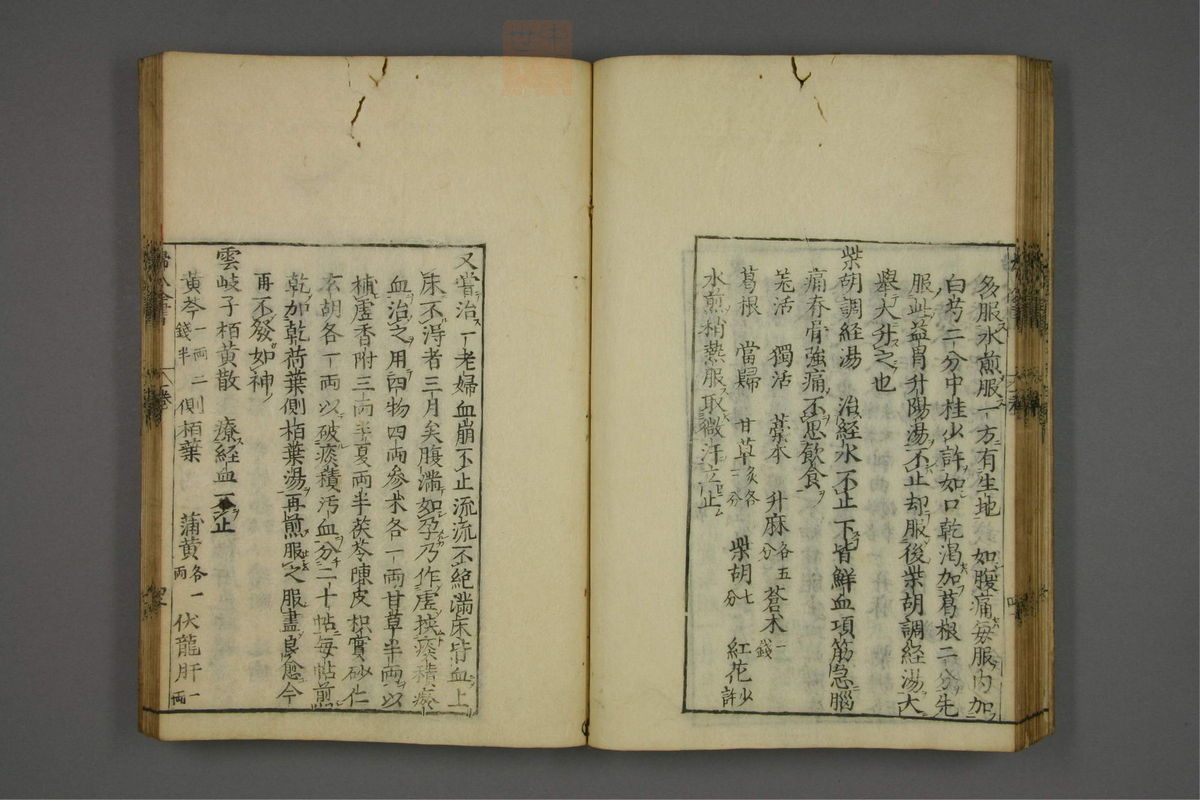 多服水煎服一方有生地 如腹痛每服内加
白芍二分中桂少許如口乾渴加葛根二分先
服此益胃升陽湯不止却服後柴胡調経湯大
舉大升之也
柴胡調経湯 治経水不止下皆鮮血項筋急腦
痛脊骨強痛不思飲食
羗活 獨活 藁本 升麻各五分 蒼术一錢
葛根 當歸 甘草炙各二分 柴胡七分 紅花少許
水煎稍熱服取微汗立止
又嘗治一老婦血崩不止流流不絶滿床皆血上
床不得者三月矣腹滿如孕乃作虚挾痰積瘀
血治之用四物四両参术各一両甘草半両以
補虚香附三両半夏両半茯苓陳皮枳實砂仁
玄胡各一両以破痰積汚血分二十帖每帖煎
乾加乾荷葉側栢葉湯再煎服之服盡良愈今
再不發如神
雲岐子栢黄散 療経血不止
黄芩一両二錢半 側栢葉 蒲黄各一両 伏龍肝一両